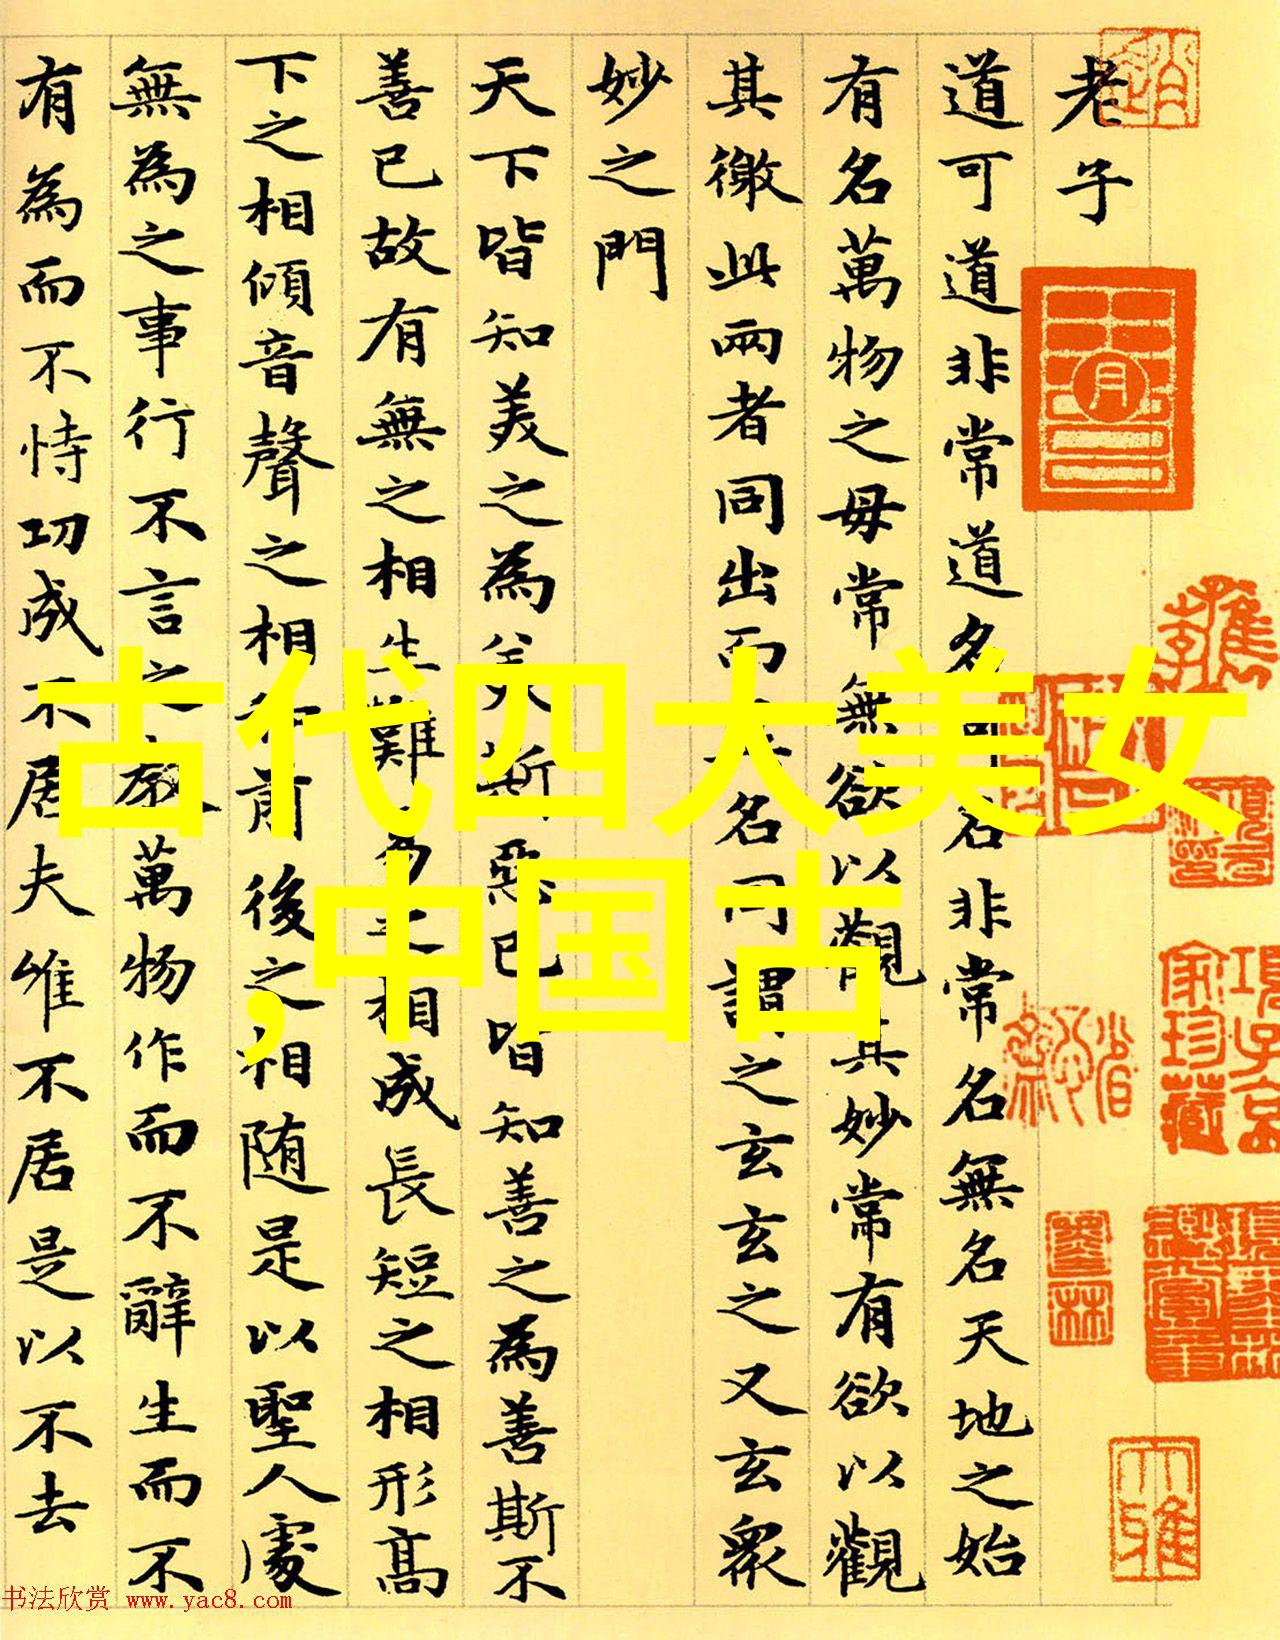 老子
道可道非常道名可名非常名無名天地之始
有名萬物之母常無欲以觀其妙常有欲以觀
其徼此兩者同出而異名同謂之玄玄之又玄衆
妙之門
天下皆知美之為美斯惡已皆知善之為善斯不
善已故有無之相生難易之相成長短之相形髙
下之相傾音聲之相和前後之相随是以聖人處
無為之事行不言之教萬物作而不辭生而不
有為而不恃功成不居夫唯不居是以不去
古代四大美女
,中国古
項子京
家珍藏
书法欣赏 www.yac8.com